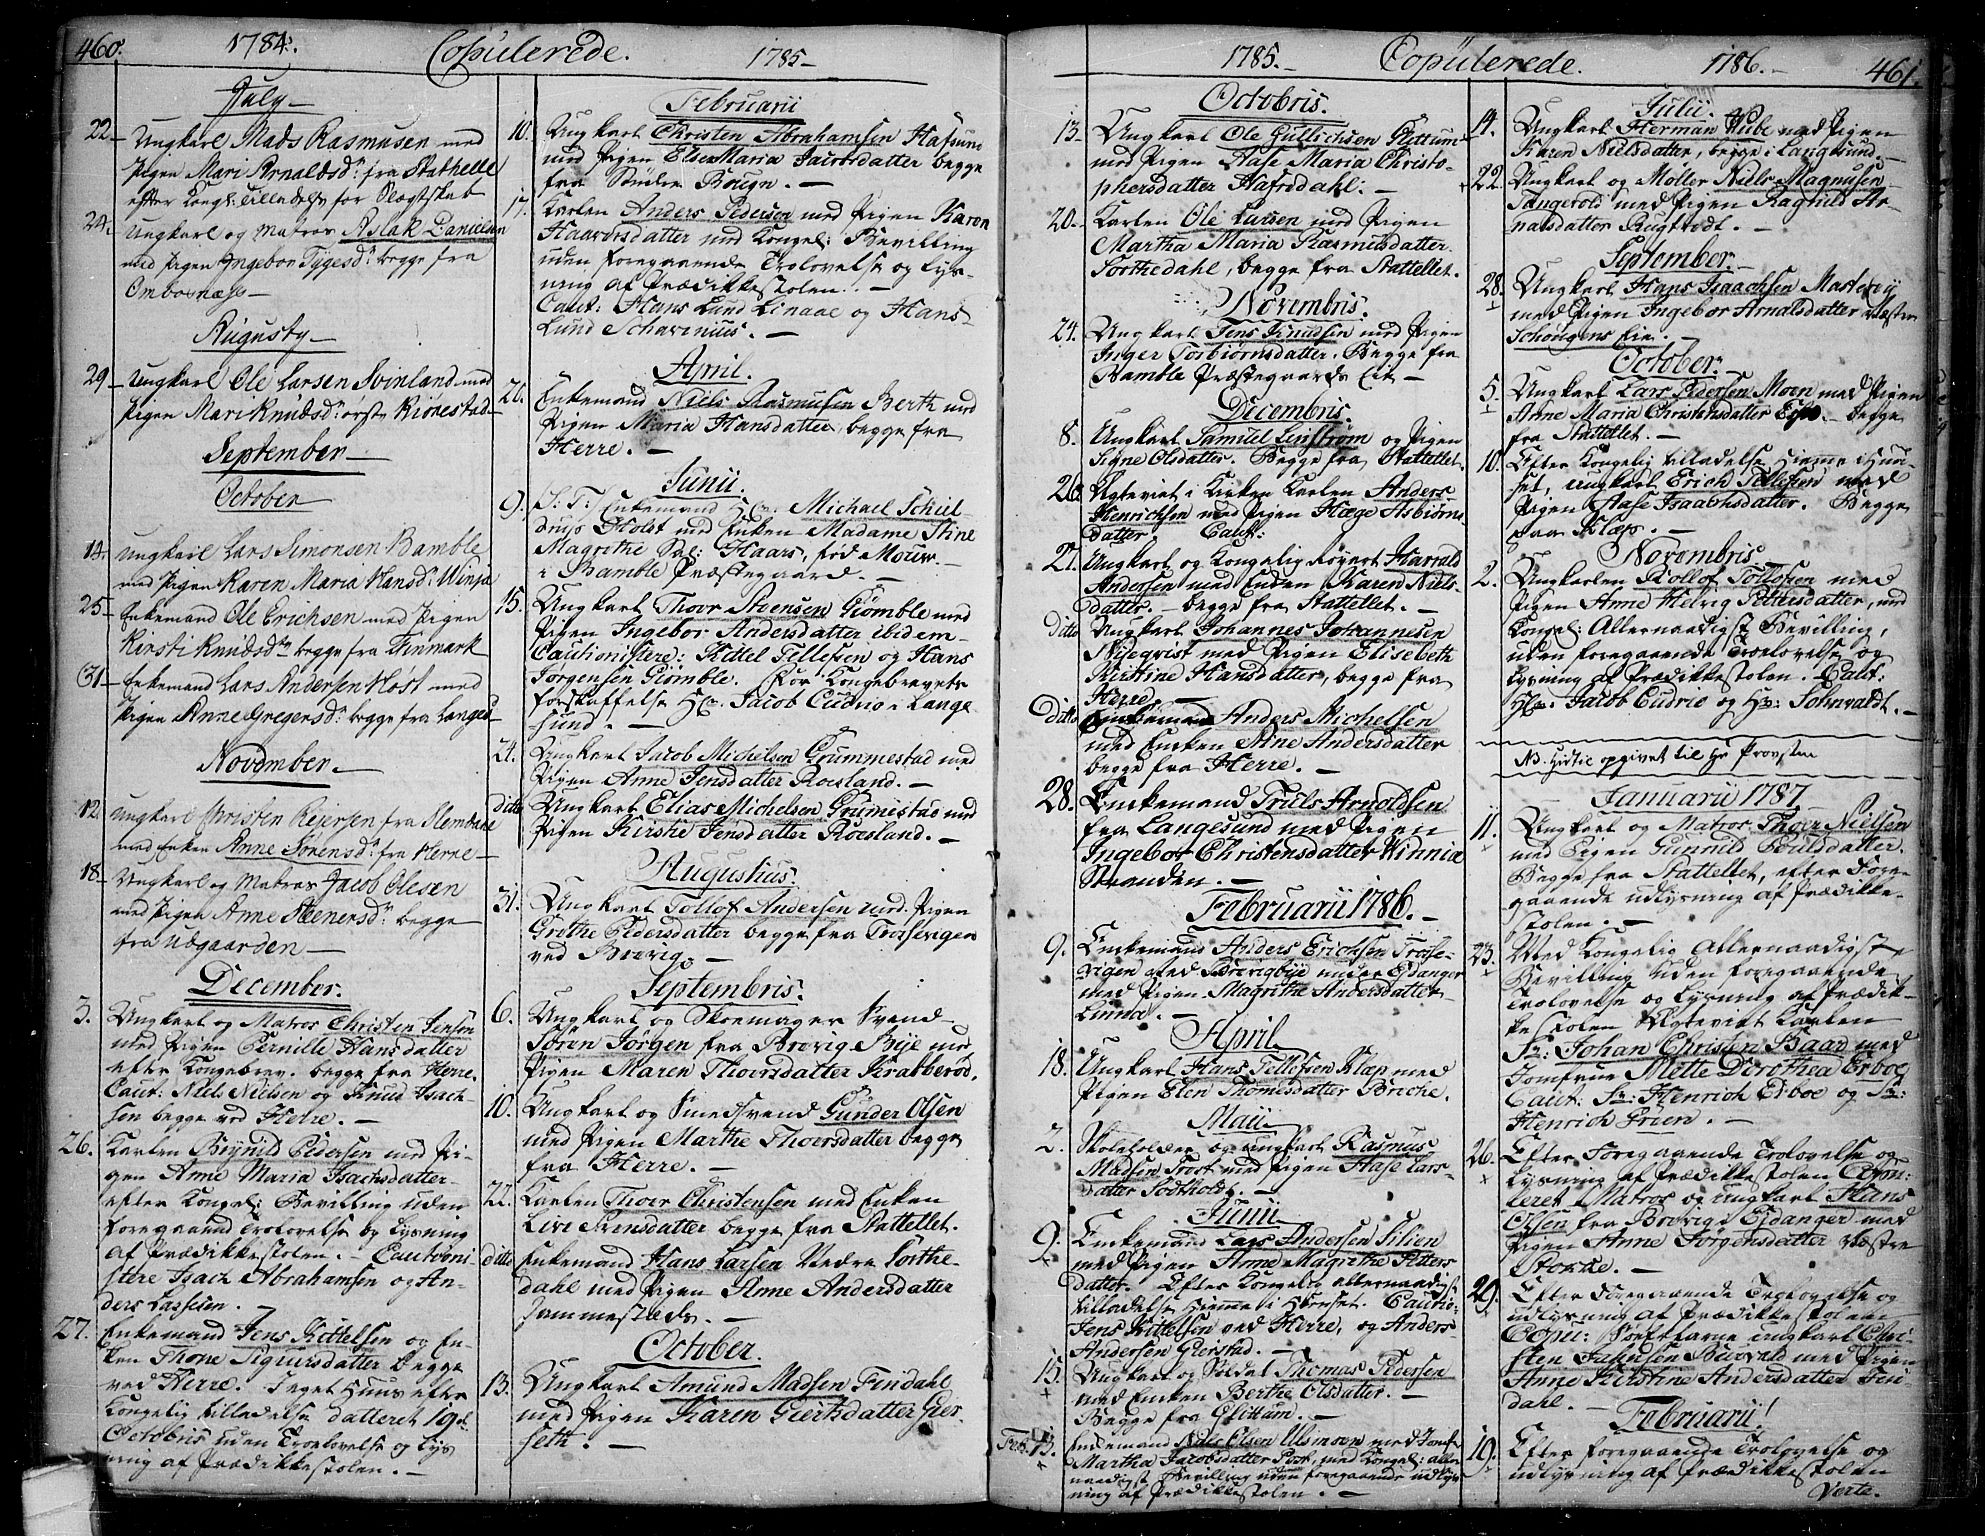 460. 1784. Copulerede. 1785.
July
22. Ungkarl Mads Rasmusen med
Pigen Mari Arnaldsd: fra Stathelle
efter Kongl: Tilladelse for Slægtskab
24. Ungkarl og Matros Aslak Danielsen
med Pigen Ingebor Tygesd: begge fra
Ombornæss
Augusty
29 Ungkarl Ole Larsen Svinland med
Pigen Mari Knudsd: Kiønestad
September
October
14. Ungkarl Lars Simonsen Bamble
med Pigen Karen Maria Hansd: Winja
25 Enkemand Ole Erichsen med Pigen
Kirsti Knudsd: begge fra Finmark
31 Enkemand Lars Andersen Host med
Pigen Anne Gregersd: begge fra Langesund
November
12. Ungkarl Christen Reiersen fra
med Enken Anne Sørensd: fra Herre
18 Ungkarl og Matros Jacob Olesen
med Pigen Anne Steenersd: begge
fra Udgaarden
December.
3. Ungkarl og Matros Christen Jensen
med Pigen Pernille Hansdatter
efter Kongebrev. begge fra Herre.
Caut: Niels Nielsen og Knud Isach-
sen begge ved Herre.
26. Karlen Brynild Pedersen med Pi-
gen Anne Maria Isachsdatter
efter Kongel: Bevilling uden
foregaaend Trolovelse og Lysning
af Prædikkestolen. Cautioni-
stere Isach Abrahamsen og An-
ders Lassesen.
27. Enkemand Jens Kittelsen og En-
ken Thone Sigursdatter begge
ved Herre. I eget Huus efter
Kongelig tilladelse datteret 19de
Octobris uden Trolovelse og Lys
ning af Prædikkestolen.
Februarii
10. Ungkarl Christen Abrahamsen Hafsund
med Pigen Else Maria Jacobsdatter begge
fra Søndre Bougn.
17. Karlen Anders Pedersen med Pigen Karen
Haavorsdatter med Kongel: Bevilling
uden foregaaende Trolovelse og Lys-
ning af Prædikkestolen.
Caut: Hans Lund Linaae og Hans
Lund Schavenius.
April.
20. Enkemand Niels Rasmusen Berth med
Pigen Maria Hansdatter, begge fra
Herre.
Junii.
9. S: T: Enkemand Hr. Michael Schiel-
drup Holst med Enken Madame Stine
Magrethe Sal: Haars, fød Mouw.
i Bamble Præstegaard.
15. Ungkarl Thor Svensen Giømble med
Pigen Ingebor Andersdatter ibidem
Cautionistere: Kittel Tellefsen og Hans
Jørgensen Giømble. For Kongebrevets
forskaffelse Hr. Jacob Cudrio i Lange-
sund.
24. Ungkarl Jacob Michelsen Grummestad med
Pigen Anne Jensdatter Roesland.
ditto Ungkarl Elias Michelsen Grumestad med
Pigen Kirstie Jensdatter Roesland.
Augustus.
31. Ungkarl Tollof Andersen med Pigen
Grethe Pedersdatter begge fra Trosevigen
ved Brevig.
Septembris.
6. Ungkarl og Skoemager Svend
Søren Jørgen fra Brevig Bije med
Pigen Maren Thorsdatter Krabberød.
10. Ungkarl og Smedsvend Gunder Olsen
med Pigen Marthe Thorsdatter begge
fra Herre.
22. Karlen Thor Christensen med Enken
Live Svensdatter begge fra Stattellet.
ditto Enkemand Hans Larsen Nedre Torthe-
dahl med Pigen Anne Andersdatter
sammesteds.
October.
13. Ungkarl Amund Madsen Findahl
med Pigen Karen Giertsdatter Gier-
seth.
1785. Copulerede. 1786. 461.
Octobris.
13. Ungkarl Ole Gullichsen Flittum
med Pigen Aase Maria Christo-
phersdatter Hafsdahl.
20. Karlen Ole Lussen med Pigen
Martha Maria Rasmusdatter
Torthedahl, begge fra Stattellet.
Novembris.
24. Ungkarl Jens Knudsen med Pigen
Inger Torbiørnsdatter. Begge fra
Bamble Præstegaards Eie
Decembris.
8. Ungkarl Samuel Linstrøm og Pigen
Signe Olsdatter. Begge fra Stattellet.
26. Egteviet i Kirken Karlen Anders
Henrichsen med Pigen Hæge Asbiørns-
datter. Caut:
27. Ungkarl og Kongelig Rojert Harrald
Andersen med Enken Karen Niels-
datter. begge fra Stattellet.
ditto Ungkarl Johannes Johannesen
Nideqvist med Pigen Elisabeth
Kirstine Hansdatter, begge fra
Herre
ditto Enkemand Anders Michelsen
med Enken Stine Andersdatter
begge fra Herre.
28. Enkemand Truls Arnoldsen
fra Langesund med Pigen
Ingebor Christensdatter Winnie
Stranden.
Februarii 1786.
9. Enkemand Anders Erichsen Trose-
vigen ved Brevigbije under Eidanger
med Pigen Magrethe Andersdatter
Linnæ.
April
18. Ungkarl Hans Tellefsen Klæp med
Pigen Elen Thomesdatter Breche.
Maii
2. Skoleholder og ungkarl Rasmus
Madsen Trost med Pigen Aase Lars-
datter Sodtholdt.
Junii
9. Enkemand Lars Andersen Silien
med Pigen Anne Magrethe Petters-
datter. Efter Kongelig allernaadigst
tilladelse hieme i Huuset. Cautio:
Jens Kittelsen ved Herre, og Anders
Andersen Gierstad.
15. Ungkarl og Soldat Thomas Pedersen
med Enken Berthe Olsdatter.
Begge fra Flittum.
Enkemand Niels Olsen Ulsmoen med Jomfr:
Martha Jacobsdatter med Kongel: aller-
naadigst Bevilling uden foregaaende udlys-
ning af Prædikkestolen.
Julii
14. Ungkarl Herman Wube med Pigen
Karen Nielsdatter, begge i Langesund.
22. Ungkarl og Møller Niels Magnusen
Tangevold med Pigen Ragnild Ar-
nalsdatter Rugtvedt.
September.
28. Ungkarl Hans Isaachsen
med Pigen Ingebor Arnalsdatter Næstre
Schougens Eie.
October.
5. Ungkarl Lars Pedersen Moen med Pigen
Anne Maria Christensdatter. begge
fra Stattellet.
10. Efter Kongelig tilladelse hieme i Huu-
set, Ungkarl Erich Tellefsen med
Pigen Aase Isaachsdatter. Begge
paa Klæp.
Novembris
2. Ungkarlen Rollof Tollofsen med
Pigen Anne Helvig Pettersdatter, med
Kongel: Allernaadigst Bevilling,
uden foregaaende Trolovelse og
Lysning af Prædikkestolen. Caut:
Hr: Jacob Cudrio og Hr: Schwaldt.
NB. hidtil opgivet til Hr Provsten
Januarii 1787
11. Ungkarl og Matros Thor Nielsen
med Pigen Gunnild Poulsdatter.
Begge fra Stattellet, efter Fore-
gaaende udlysning af Prædikke-
stolen.
23. Med Kongelig Allernaadigst
Bevilling uden foregaaende
Trolovelse og Lysning af Prædik-
kestolen Egteviet Karlen
Sr: Johan Christen Baar med
Jomfrue Mette Dorothea Erboe
Caut: Sr: Henrich Erboe og Sr:
Henrich Frien.
26. Efter Foregaaende Trolovelse og
Lysning af Prædikkestolen Copu-
leret Matros og ungkarl Hans
Olsen fra Brevig i Ejdanger med
Pigen Anne Jørgensdatter Næstre
Stokke.
29. Efter Foregaaende Trolovelse og
udlysning af Prædikkestolen
Copu: ungkarl Chri-
sten med Pigen
Anne Kirstine Andersdatter Fin-
dahl.
Februarii!
19. Efter foregaaende Trolovelse og
udlysning af Prædikkestolen
Verte.